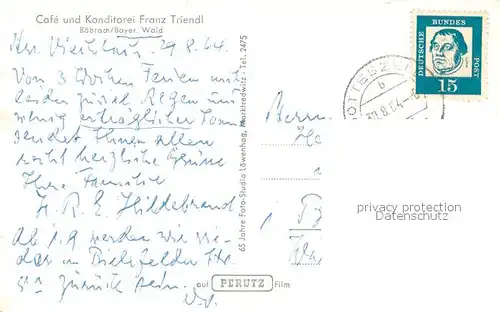 Café und Konditorei Franz Triendl
Böbrach/Bayer. Wald
29.8.64.
Von 3 Wochen Ferien mit
leider zuviel Regen und
wenig erträglicher Sonne
sendet Ihnen allen
recht herzliche Grüße
Ihre Familie
H. R. E. Hildebrand
Ab 1.9. werden wir wie-
der in Bielefelder Str.
5a zurück sein.
D.O.
65 Jahre Foto-Studio Löwenhag, Marktredwitz - Tel. 2475
auf PERUTZ Film
DEUTSCHE BUNDES POST
15
b
Herrn
privacy protection
Datenschutz